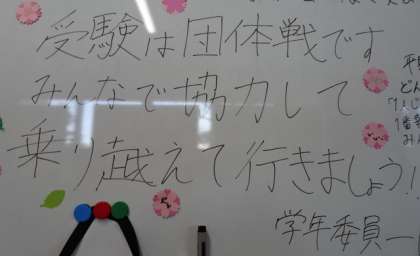 受験は団体戦です
みんなで協力して
乗り越えて行きましょう!!
学年委員一